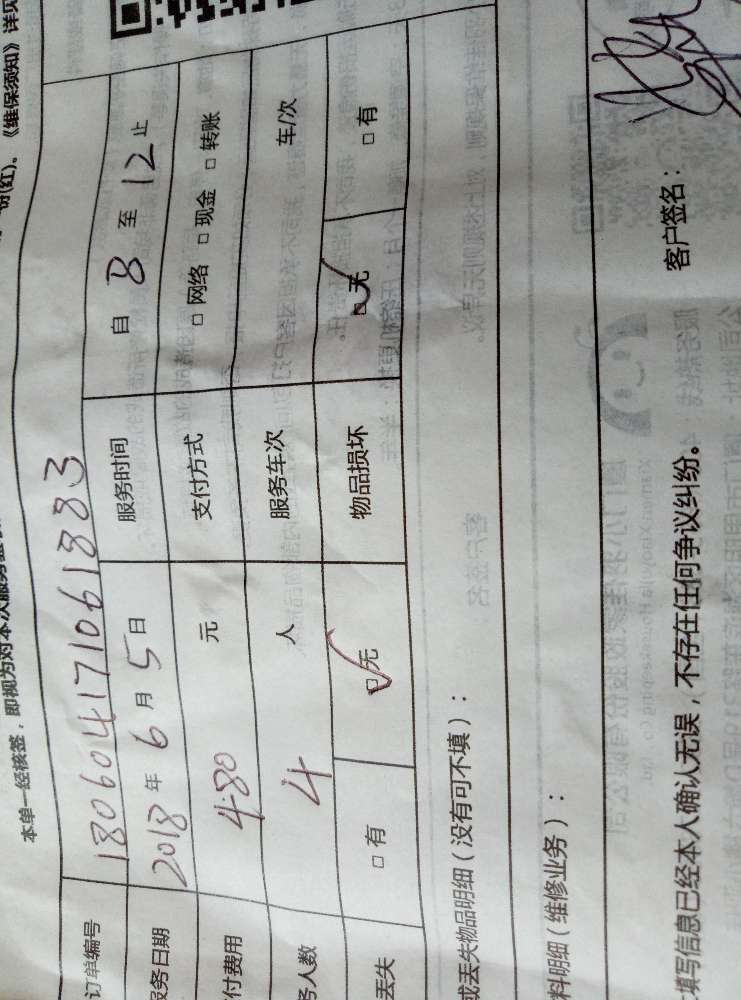 《维保须知》详见
本单一经核签，即视为对本次服务
订单编号 180604171061883
服务日期 2018 年 6 月 5 日 服务时间 自 8 至 12 止
付费用 480 元 支付方式 □ 网络 □ 现金 □ 转账
务人数 4 人 服务车次 车/次
丢失 □ 有 □ 无 ✓ 物品损坏 □ 无 ✓ □ 有
或丢失物品明细（没有可不填）：
料明细（维修业务）：
填写信息已经本人确认无误，不存在任何争议纠纷。 客户签名：